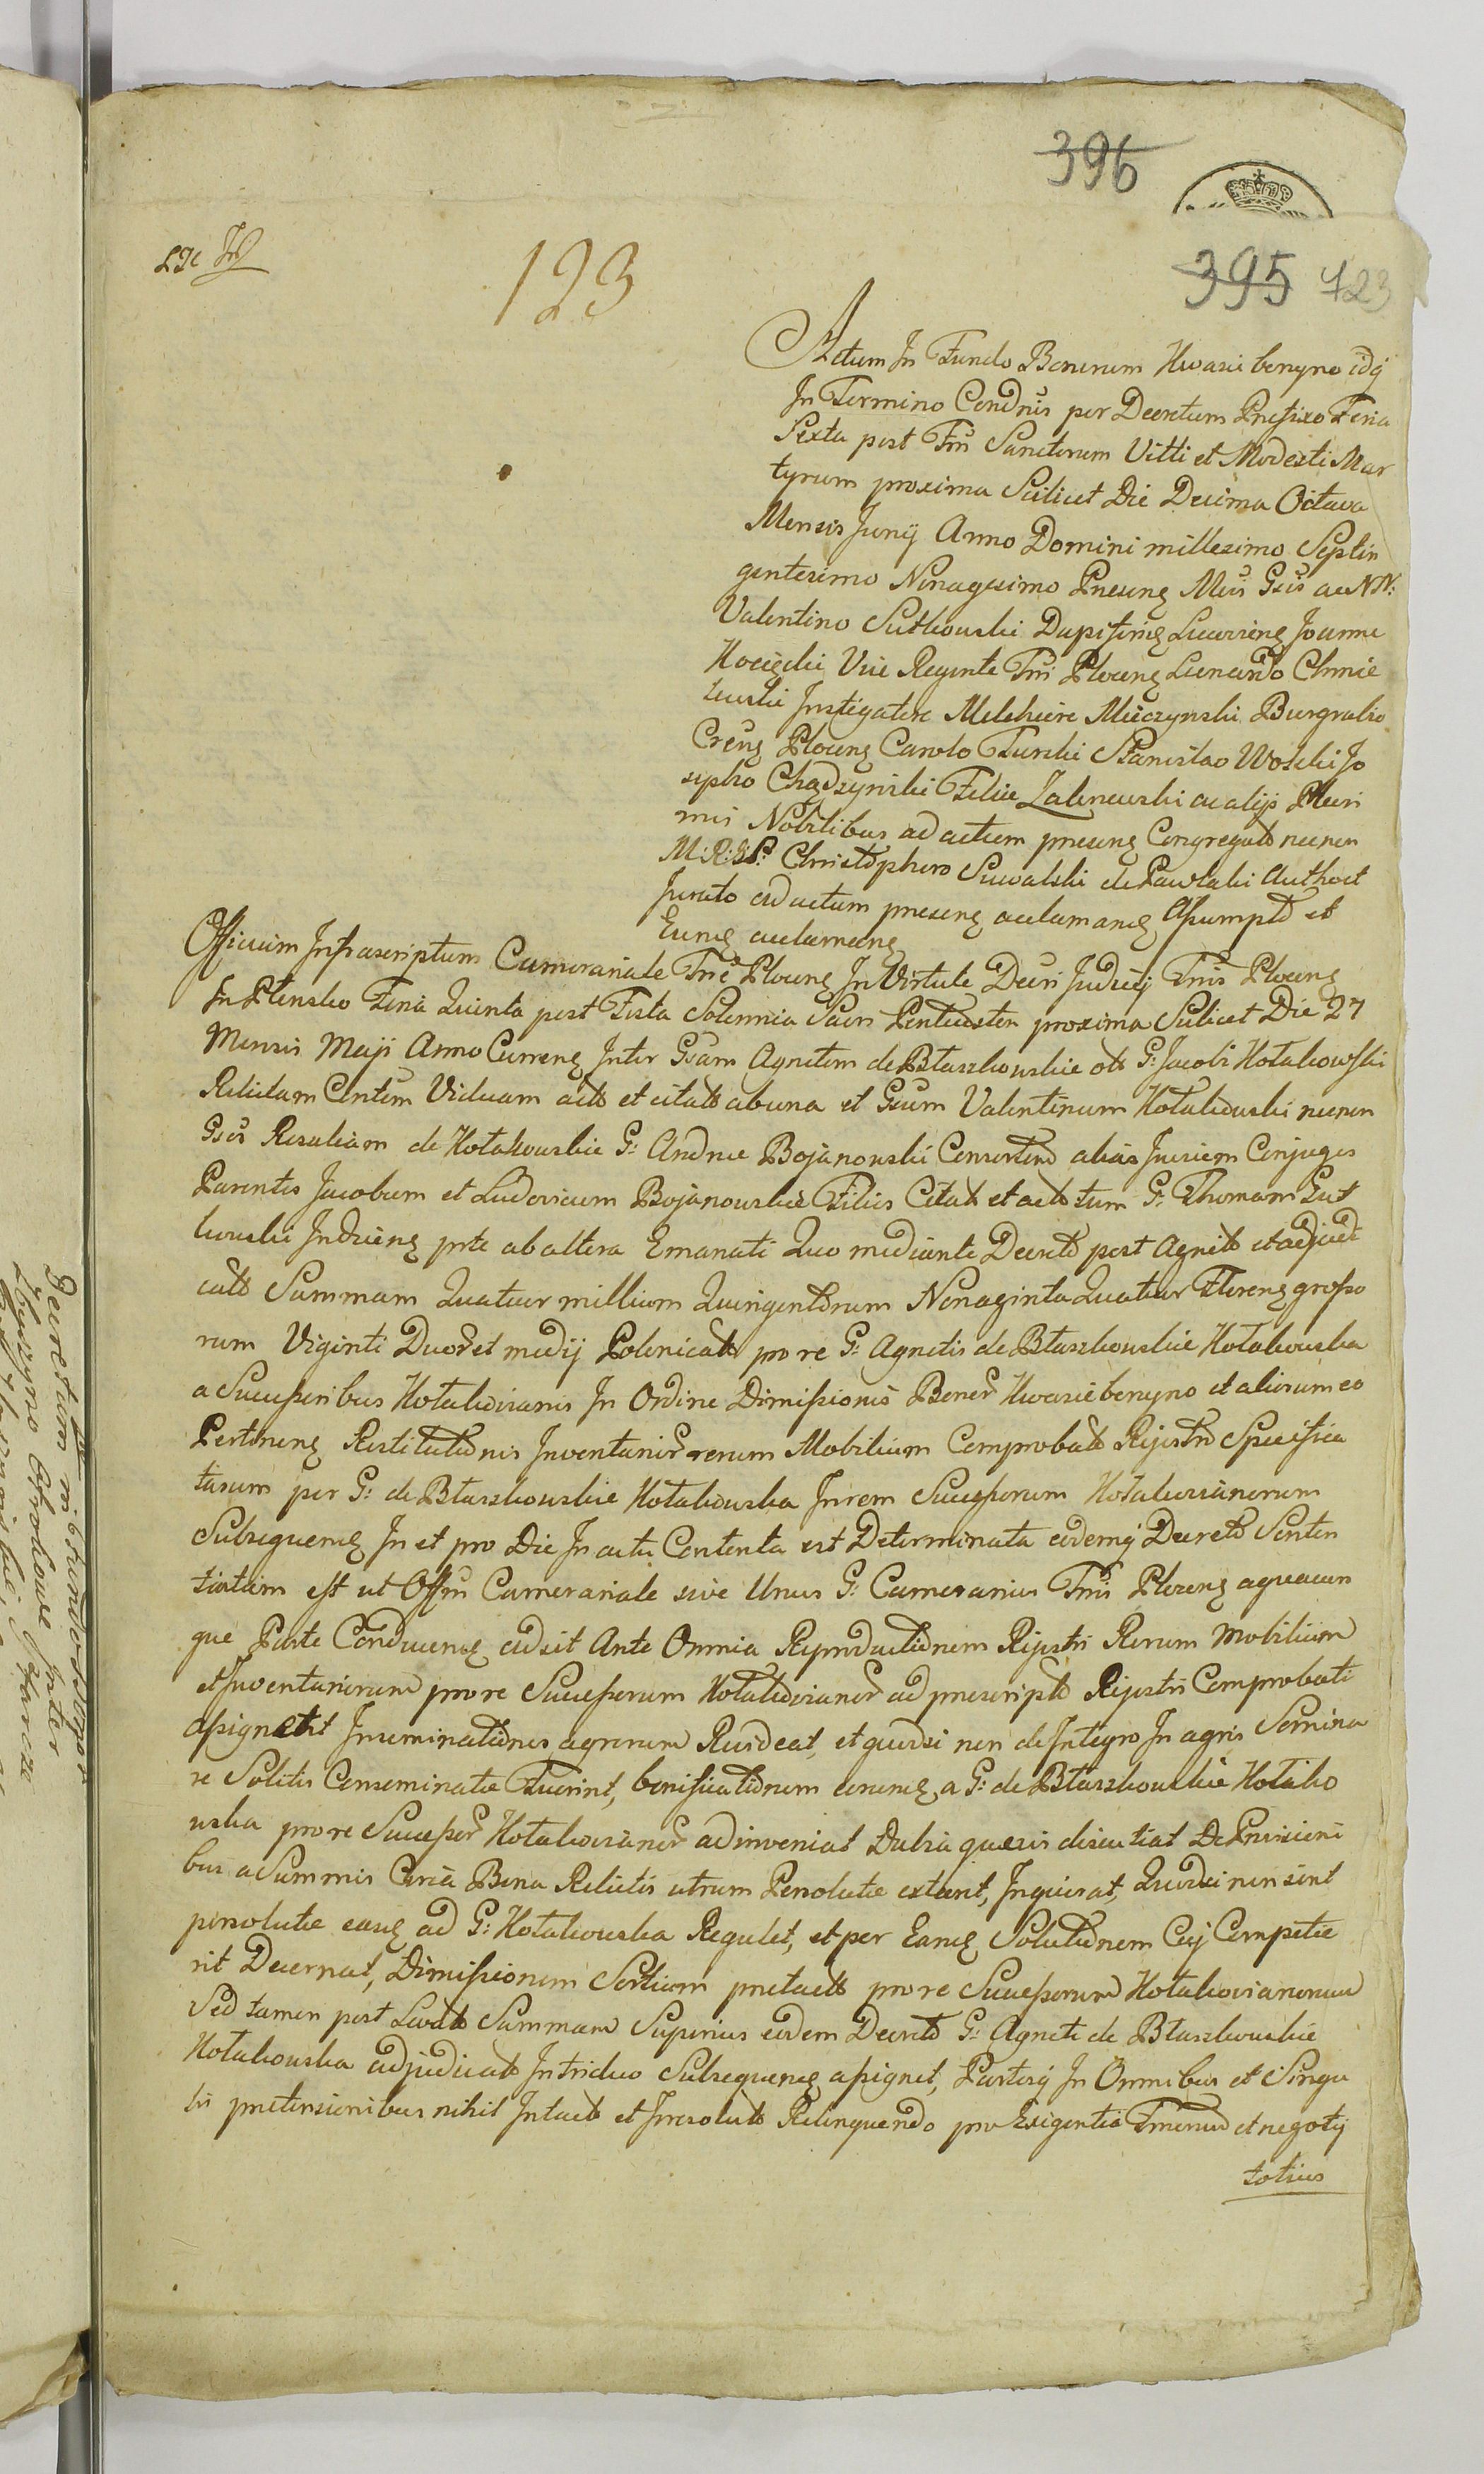 396
395 123
123
Actum In Fundo Bonorum Kwasiebenyno idq
In Termino Condnis per Decretum Prefixo Feria
Sexta post Ftm Sanctorum Vitti et Modesti Mar
tyrum proxima Scilicet Die Decima Octava
Mensis Junij Anno Domini millesimo Septin
gentesimo Nonagesimo Presens Mcis Gsis ac NN:
Valentino Sutkowski Dapifero Joanne
Kocięcki Vice Regente Tri Plocens Leonardo Chmie
lewski Instigatore Melchiore Miłczynski Burgrabio
Crens Plocens Carolo Turski Stanislao Wolski Jo
sepho Chądzynski Felice Zalewski ac alijs Pluri
mis Nobilibus ad actum presens Congregatis necnon
M:R:S:P: Christophoro Suwalski de Pawlaki Authort
Jurato ad actum presens acclamans Assumpto et
Eums acclamans
Officium Infrascriptum Camerariale Tre Plocens In Virtute Decri Judicij Tris Plocens
In Plonsko Feria Quinta post Festa Solennia Sacri Pentecostes proxima Scilicet Die 27
Mensis Maji Anno Currens Inter Gsam Agnetem de Błaszkowskie olt G: Jacobi Kotakowski
Relictam Cntem Viduam actt et citatt ab una et Gsum Valentinum Kotakowski necnon
Gsos Rosaliam de Kotakowskie G: Andrae Bojanowski Consortem alias Invicem Conjuges
Parentes Jacobum et Ludovicum Bojanowskie Filios Citatt et actt tum G: Thomam Sut
kowski Inducens prte ab altera Emanati Quo mediante Decreto post agnitt et adjudi
catt Summam Quatuor millium Quingentorum Nonaginta Quatuor Florens grosso
rum Viginti Duor et medij Polonicalt pro re G: Agnetis de Błaszkowskie Kotakowska
a Successoribus Kotakovianis In Ordine Dimissionis Bonor Kwasiebenyno et aliorum eo
Pertinens Restitutionis Inventarior rerum Mobilium Comprobatt Rejestro Specifica
tarum per G: de Błaszkowskie Kotakowska In rem Successorum Kotakovianorum
Subsequens In et pro Die In actu Contenta est Determinata eodemq Decreto Senten
tiatum est ut Offm Camerariale sive Unus G: Camerarius Tris Plocens a quacun
que Parte Conducens adsit Ante Omnia Reproductionem Rejestri Rerum Mobilium
et Inventariorum pro re Successorum Kotakovianor ad prescriptt Rejestri Comprobati
assignet Inseminationes agrorum Revideat, et quodsi non de Integro In agris Semina
re Solitis Conseminatae Fuerint, bonificationem earums a G: de Błaszkowskie Kotako
wska pro re Successor Kotakovianor adinveniat Dubia quaevis discutiat De Provisioni
bus a Summis Circa Bona Relictis utrum Persolutae extant, Inquirat, Quodsi non sint
persolutae eass ad G: Kotakowska Regulet, et per Eams Solutionem Cuj Competie
rit Decernat, Dimissionem Sortium pretactt pro re Successorum Kotakovianorum
Sed tamen post Levatt Summam Superius eodem Decreto G: Agneti de Błaszkowskie
Kotakowska adjudicatt In triduo Subsequens assignet, Partesq In Omnibus et Singu
lis pretensionibus nihil Intactt et Irresolutt Relinquendo pro Exigentia Trminorum et negotij
totius